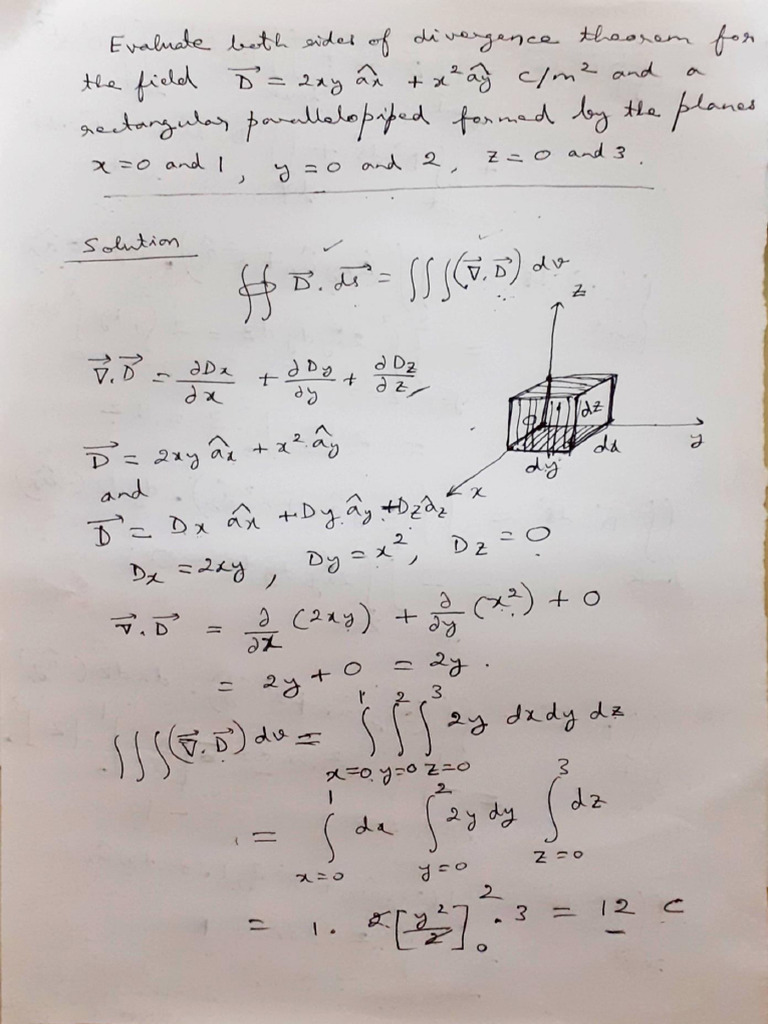 Evaluate both sides of divergence theorem for
the field D⃗ = 2xy âx + x² ây C/m² and a
rectangular parallelopiped formed by the planes
x=0 and 1, y=0 and 2, z=0 and 3.
Solution
∯ D⃗. ds⃗ = ∫∫∫(∇⃗. D⃗) dv
z
∇⃗.D⃗ = ∂Dx/∂x + ∂Dy/∂y + ∂Dz/∂z
dz
y
dx
dy
x
D⃗ = 2xy âx + x² ây
and
D⃗ = Dx âx + Dy ây + Dz âz
Dx = 2xy, Dy = x², Dz = 0
∇⃗.D⃗ = ∂/∂x (2xy) + ∂/∂y (x²) + 0
= 2y + 0 = 2y.
∫∫∫(∇⃗. D⃗) dv = ∫_{x=0}^{1} ∫_{y=0}^{2} ∫_{z=0}^{3} 2y dx dy dz
= ∫_{x=0}^{1} dx ∫_{y=0}^{2} 2y dy ∫_{z=0}^{3} dz
= 1. 2[y²/2]_{0}^{2} . 3 = 12 C